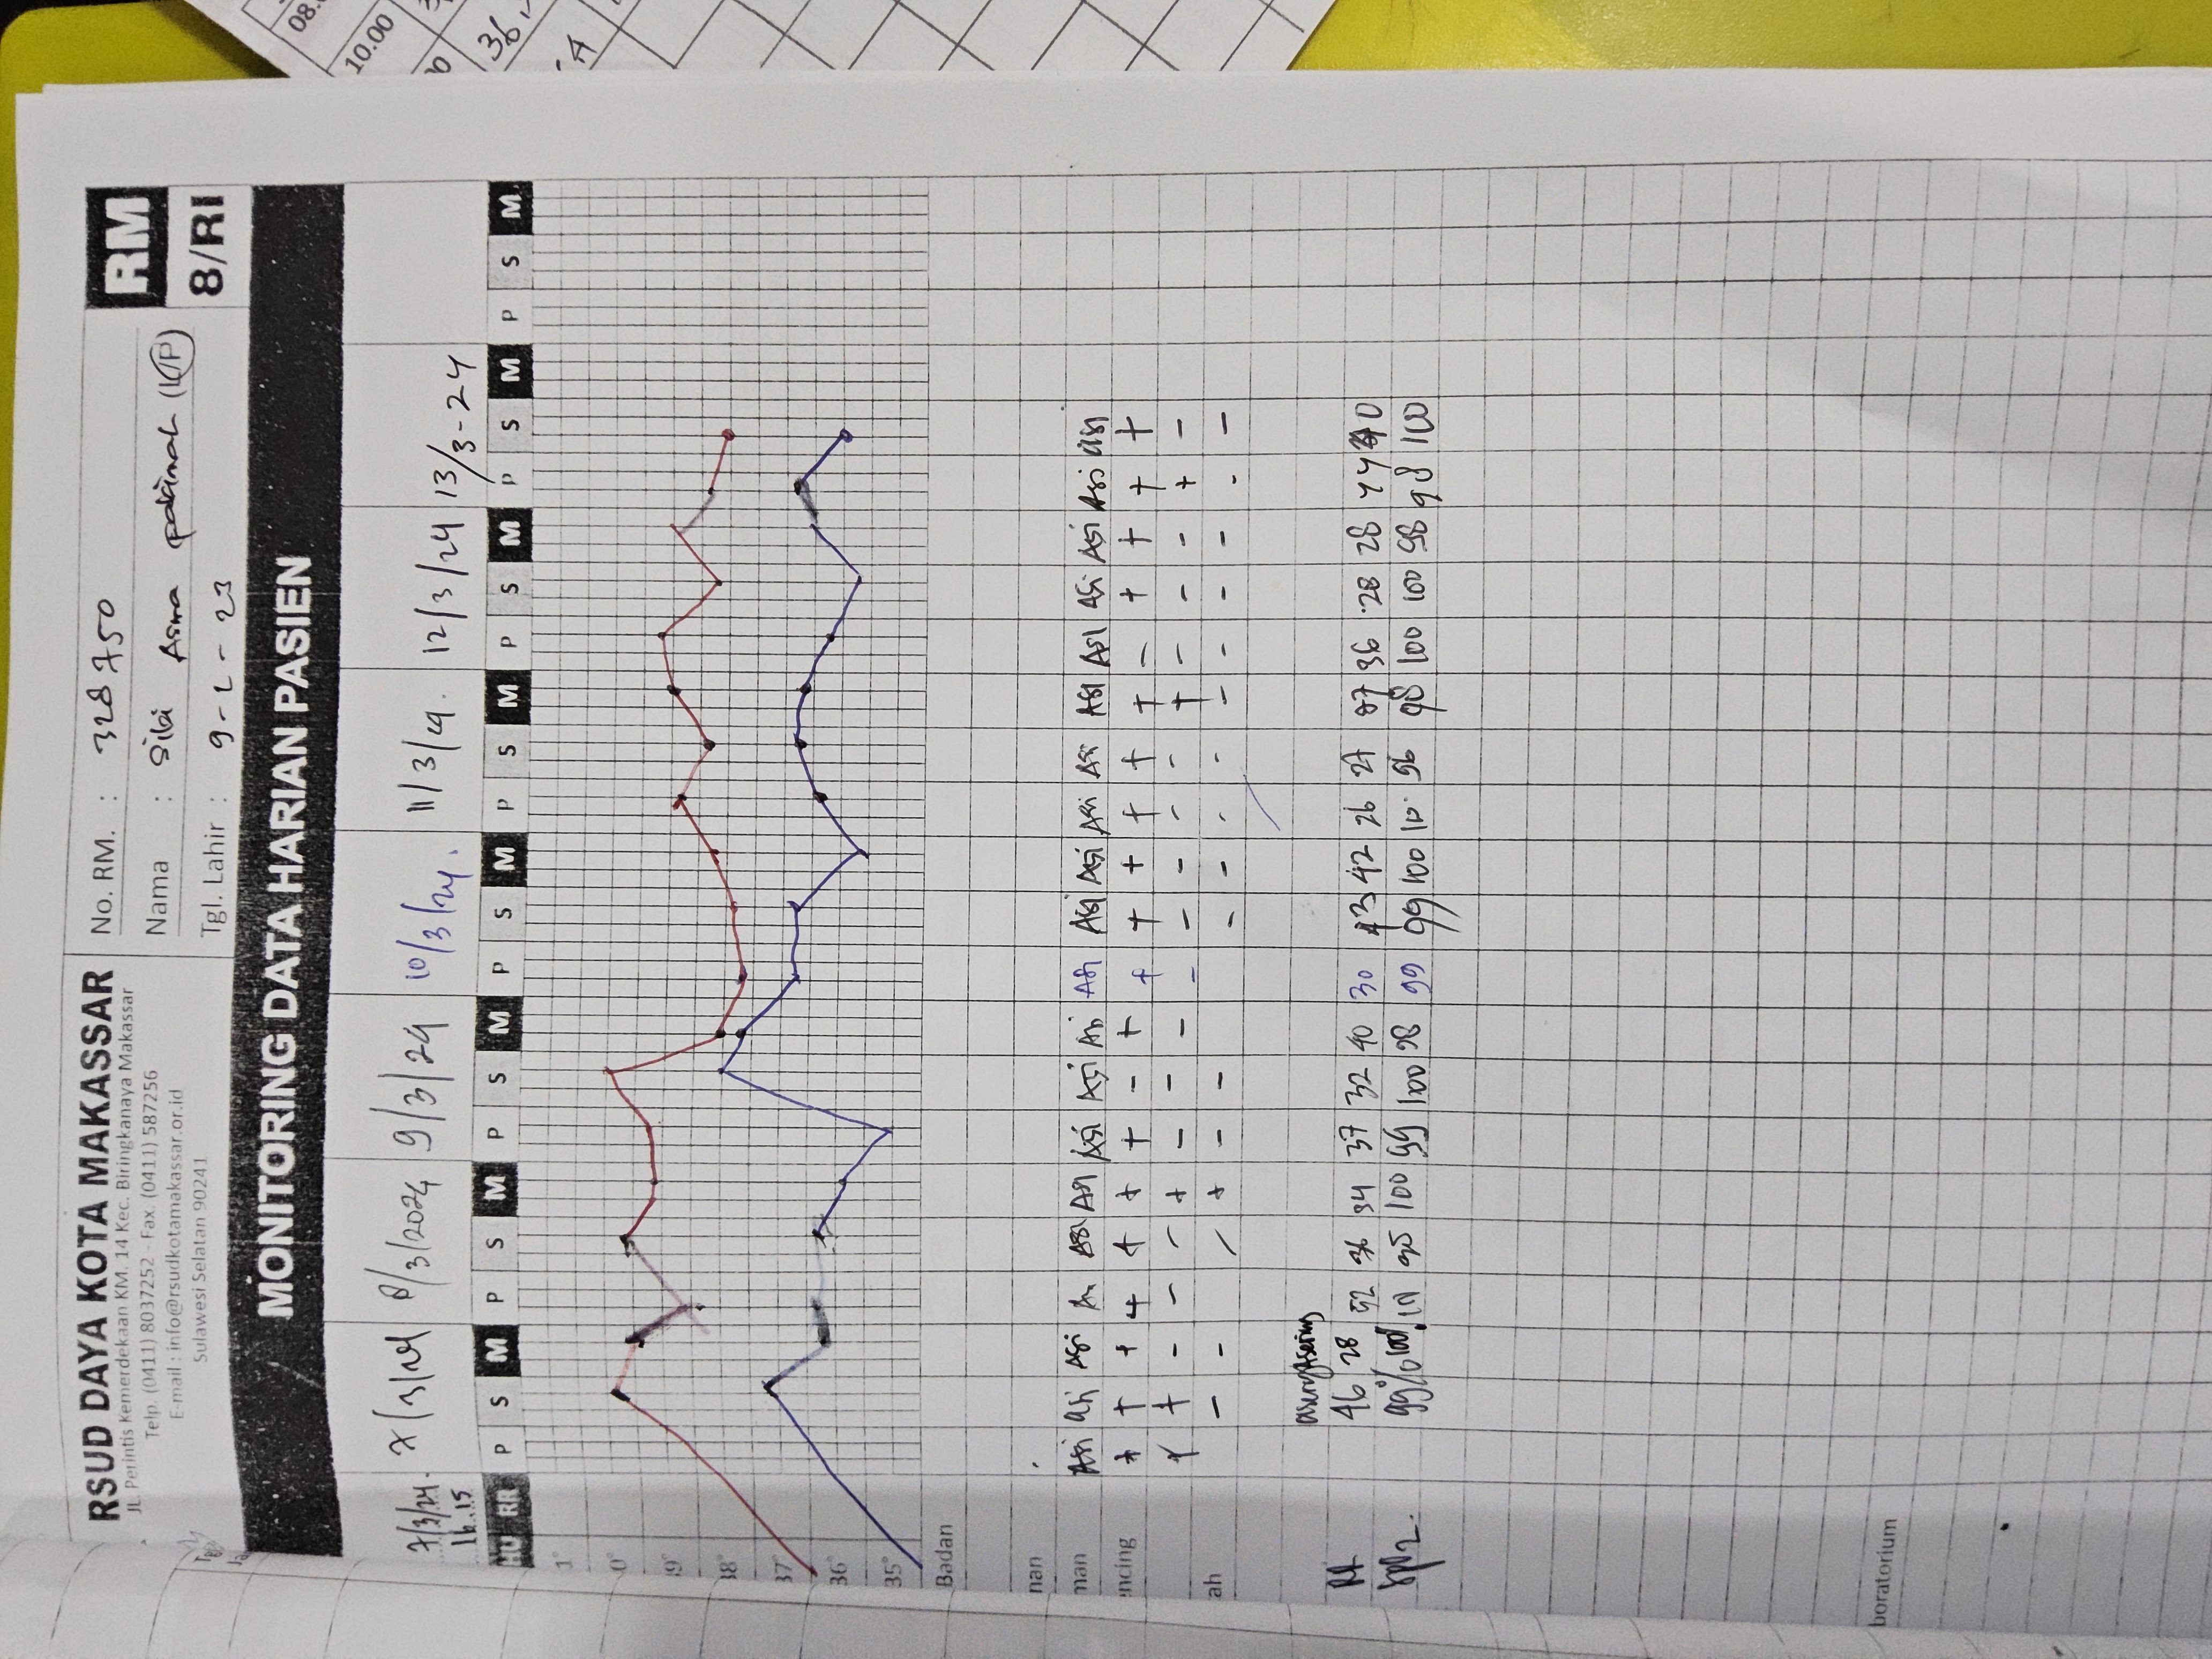 RSUD DAYA KOTA MAKASSAR
JL. Perintis Kemerdekaan KM. 14 Kec. Biringkanaya Makassar
Telp. (0411) 8037252 - Fax. (0411) 587256
E-mail : info@rsudkotamakassar.or.id
Sulawesi Selatan 90241
No. RM. : 328750
Nama : Asma (L/P)
Tgl. Lahir : 9-2-23
RM
8/RI
MONITORING DATA HARIAN PASIEN
7/3/24 7/3/24 8/3/2024 9/3/24 10/3/24. 11/3/24. 12/3/24 13/3-24
16.15
HU RR P S M P S M P S M P S M P S M P S M P S M P S M
1°
0°
39°
38°
37°
36°
35°
Badan
nan
man Asi asi Asi ASI ASI Asi Asi ASI Asi Asi Asi Asi ASI ASI Asi Asi Asi asi
encing + + + + + + + - + + + + + + + - + + + +
+ + - - - + - - - - - - - - + - - - + -
ah - - - + - - - - - - - - - - - -
Asering
RR 46 28 52 36 34 37 32 40 30 43 42 26 27 37 36 28 28 44 40
SpO2. 99% 100% 100 99 100 98 99 99 100 96 98 100 100 98 98 100
boratorium
08.
10.00
36,